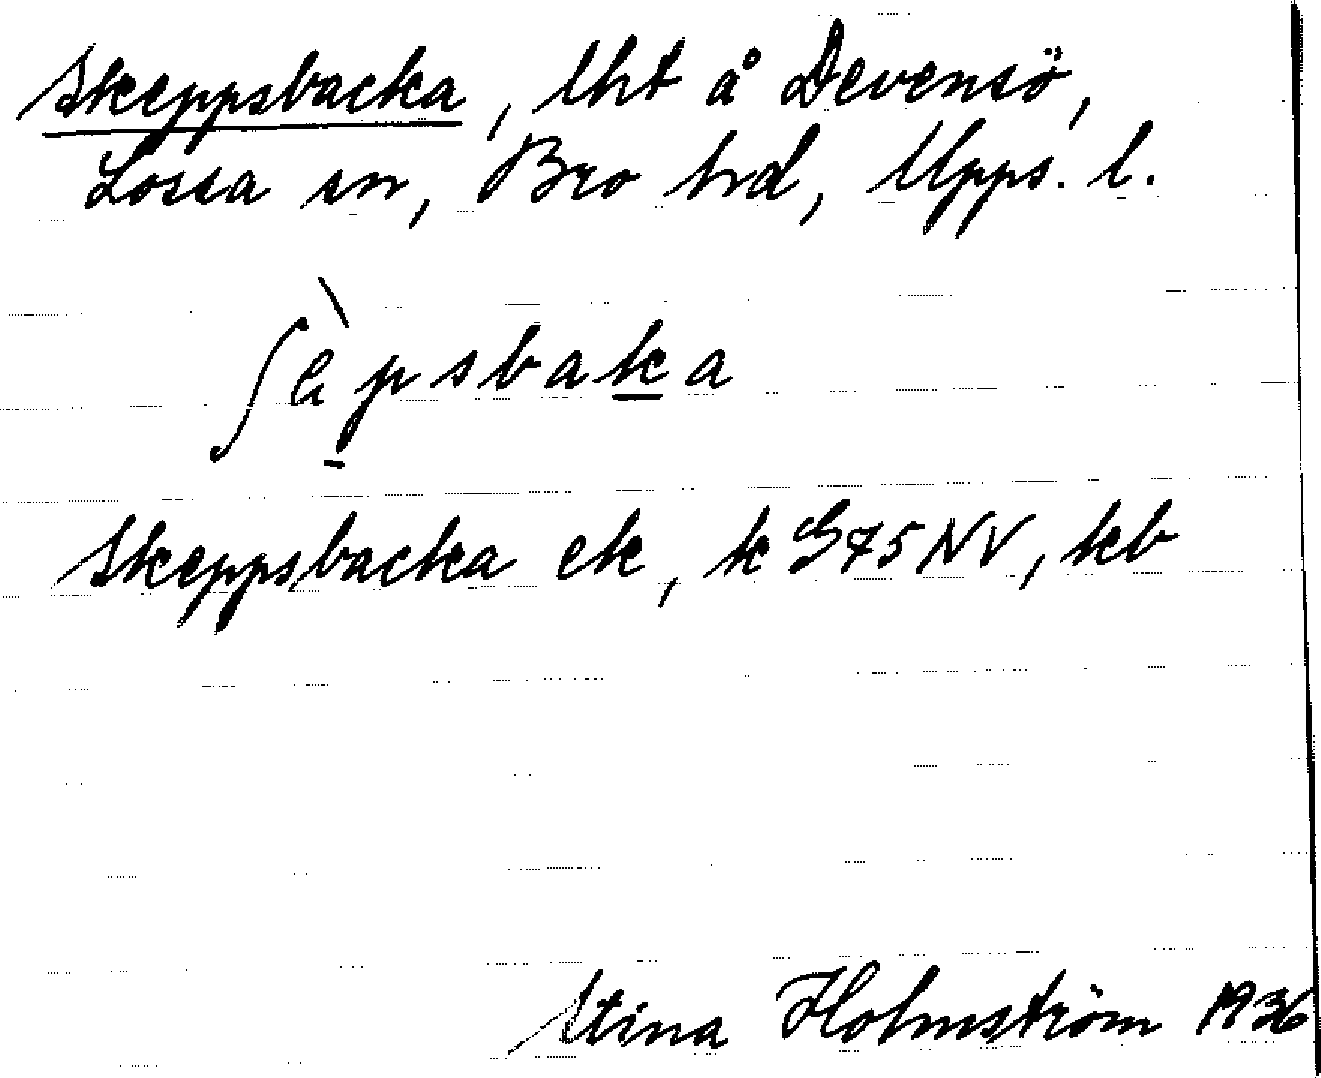 Skeppsbacka, lht å Devensö,
Lossa sn, Bro hd, Upps. l.
ʃèpsbaka
Skeppsbacka ek, k G75NV, kb
Stina Holmström 1936